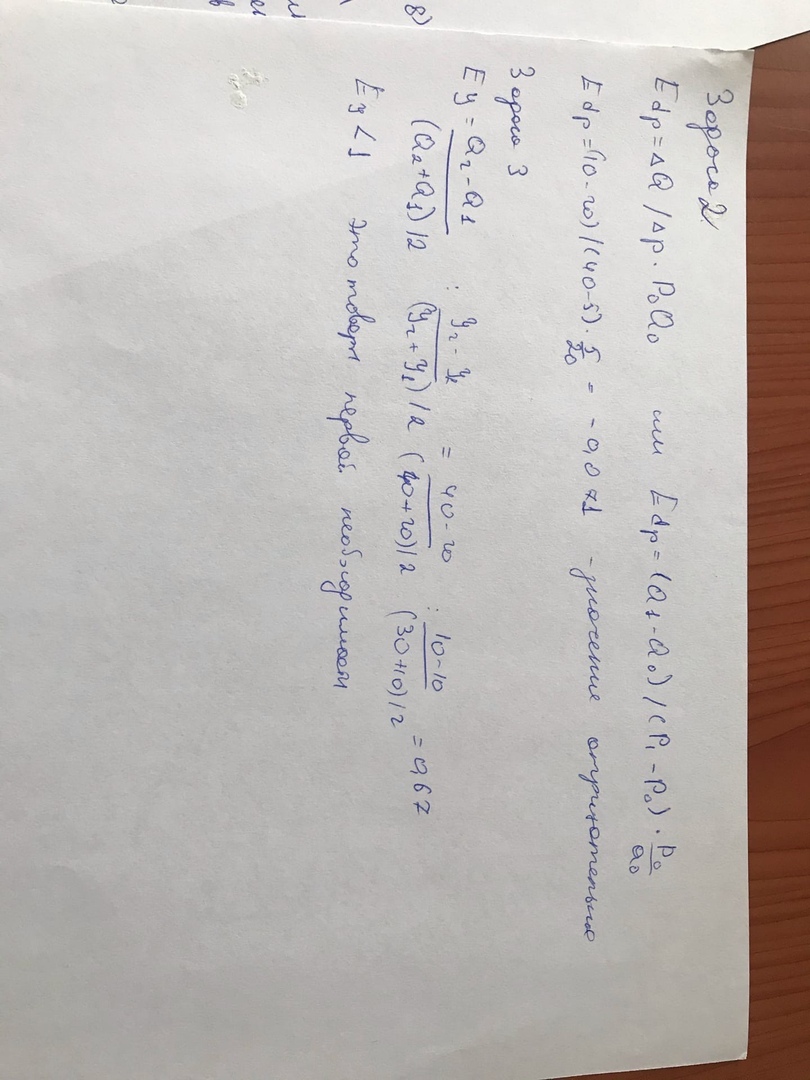 8)
Задача 2
Edp = ΔQ / Δp · P₀Q₀ или Edp = (Q1 - Q₀) / (P₁ - P₀) · P₀/Q₀
Edp = (10-20) / (40-5) · 5/20 = - 0,071 - значение отрицательное
Задача 3
Ey = Q₂ - Q1 / (Q₂ + Q1) / 2 : y₂ - y1 / (y₂ + y1) / 2 = 40-20 / (40+20) / 2 : 10-10 / (30+10) / 2 = 0,67
Ey < 1 это товары первой необходимости